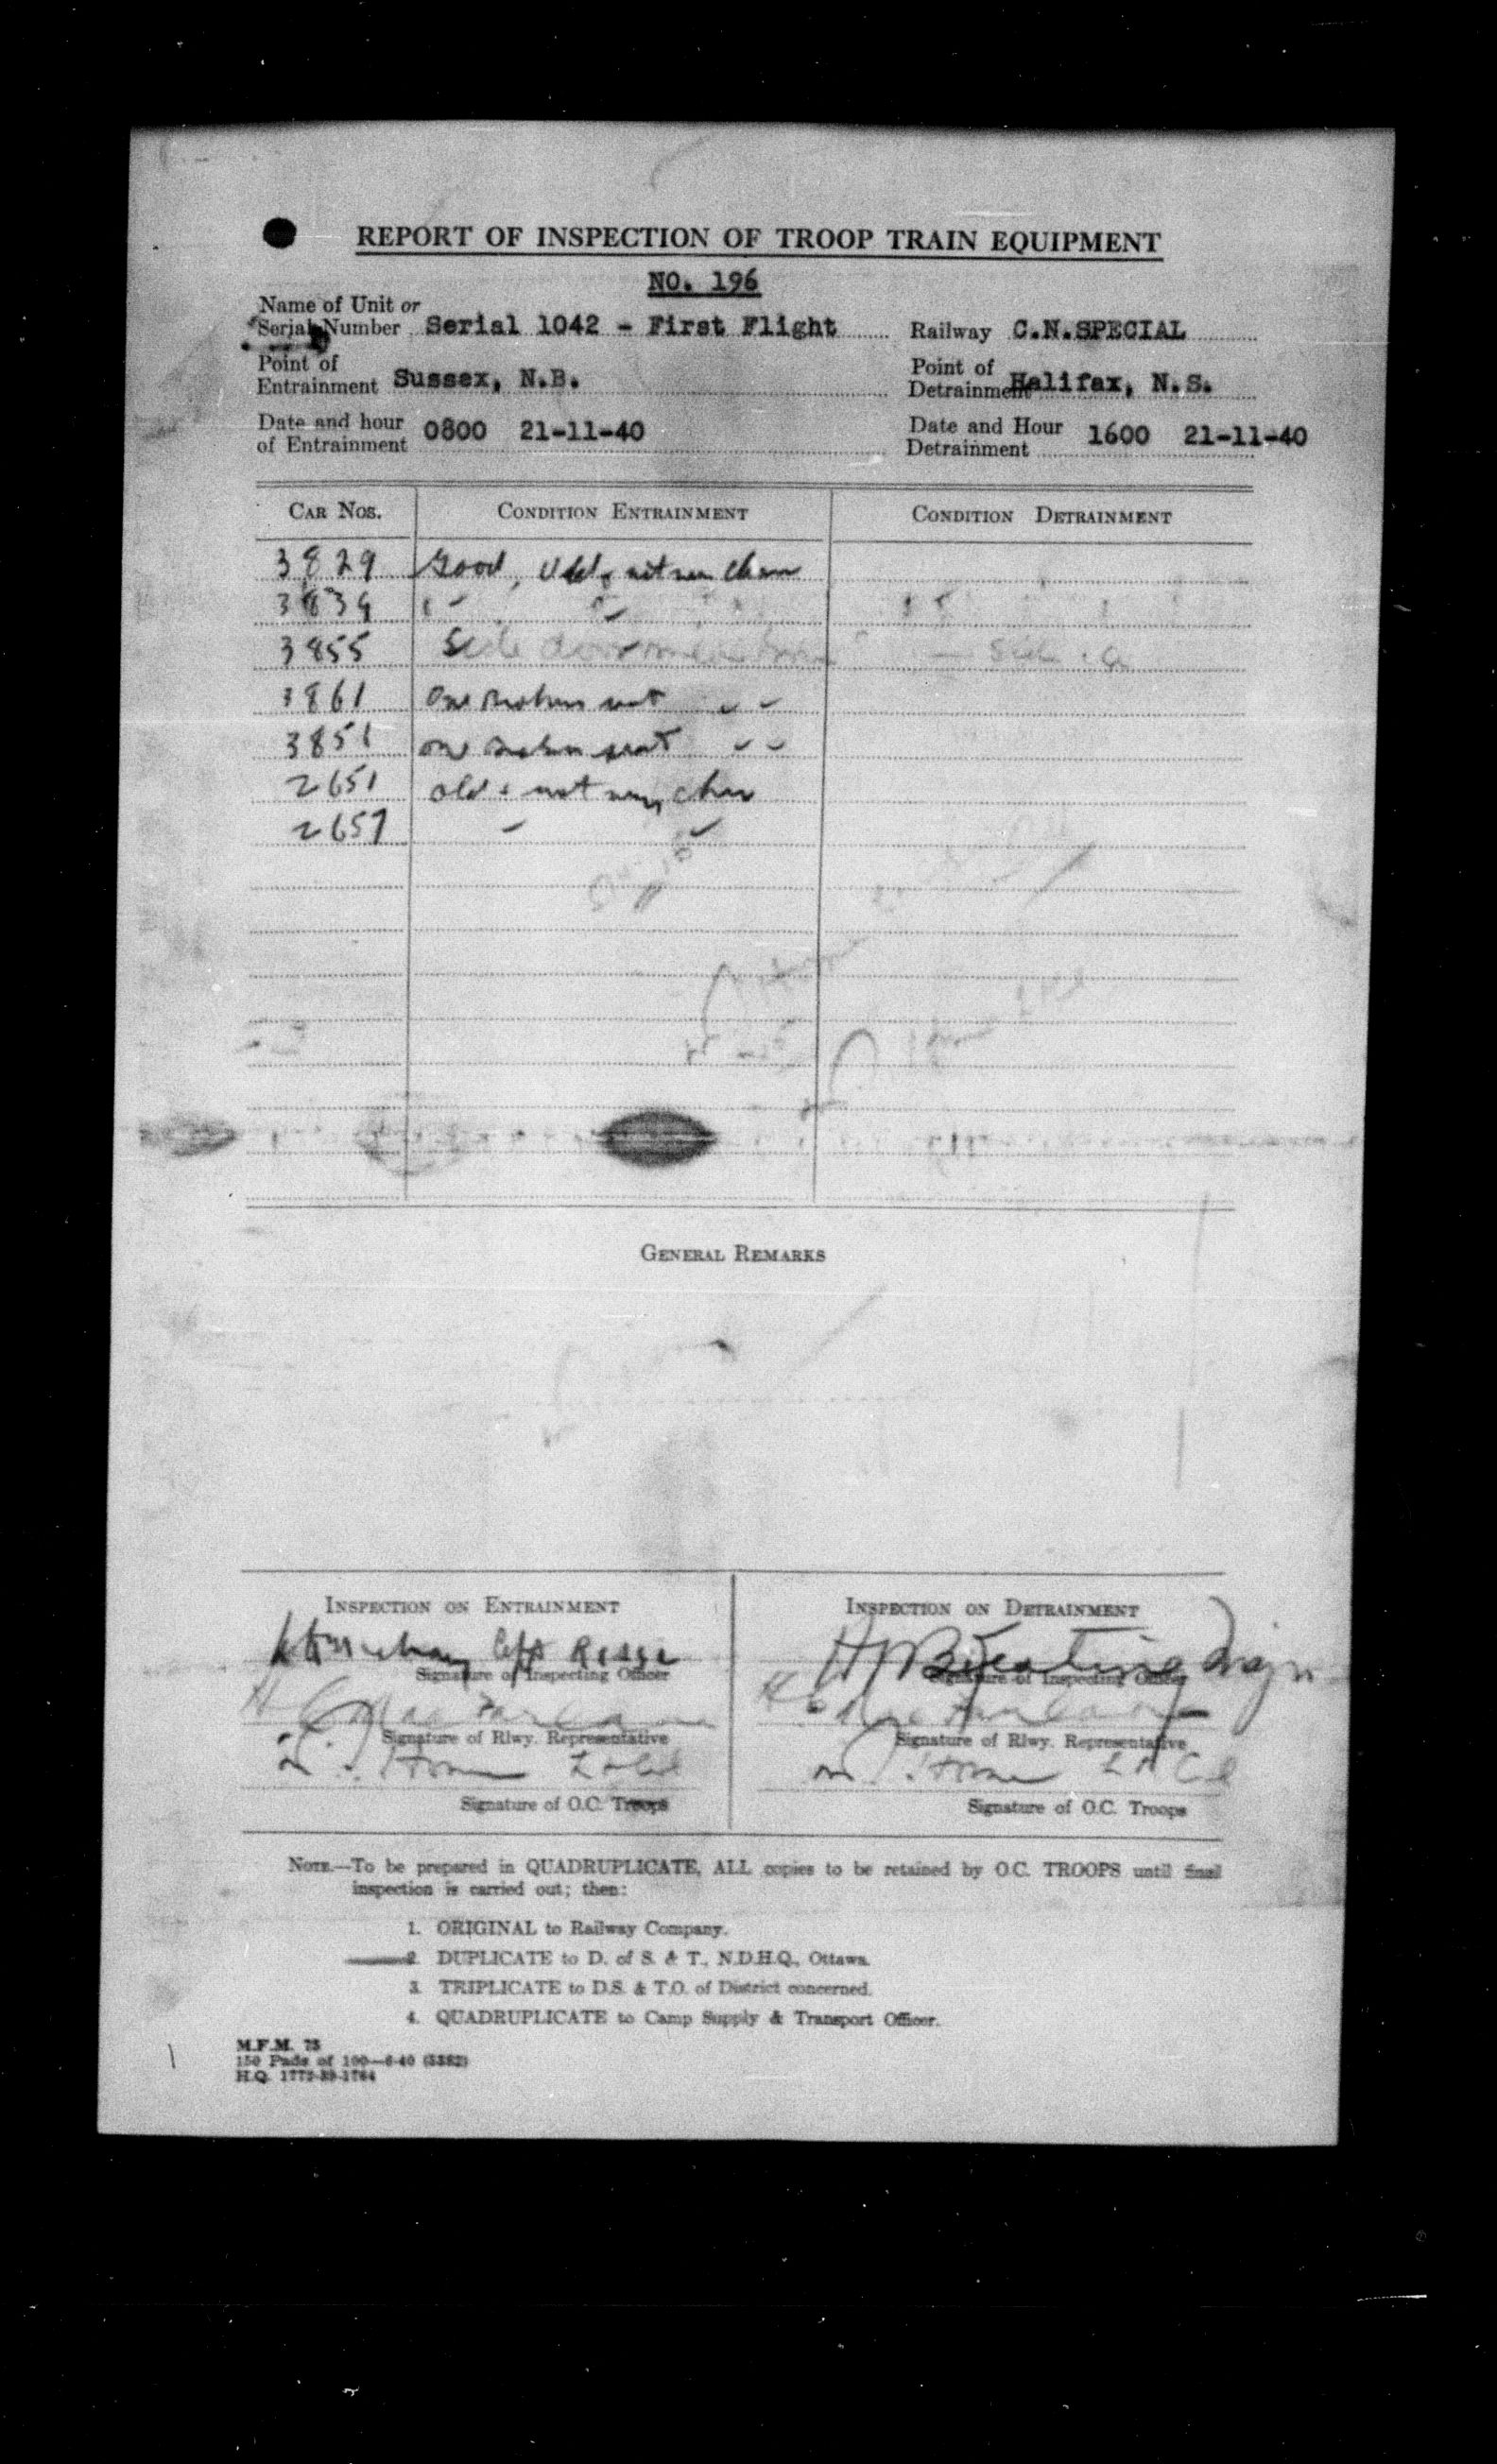 REPORT OF INSPECTION OF TROOP TRAIN EQUIPMENT
NO. 196
Name of Unit or
Serial Number Serial 1042 - First Flight Railway C.N.SPECIAL
Point of Entrainment Sussex, N.B. Point of Detrainment Halifax, N.S.
Date and hour of Entrainment 0800 21-11-40 Date and Hour Detrainment 1600 21-11-40
CAR NOS. CONDITION ENTRAINMENT CONDITION DETRAINMENT
3829 Good, Old, not very clean
3839
3855 Side door
3861 One Broken seat
3851 one Broken seat
2651 old & not very clean
2657
GENERAL REMARKS
INSPECTION ON ENTRAINMENT INSPECTION ON DETRAINMENT
Signature of Inspecting Officer Signature of Inspecting Officer
H MacFarlane MacFarlane
Signature of Rlwy. Representative Signature of Rlwy. Representative
Lt Col Lt Col
Signature of O.C. Troops Signature of O.C. Troops
NOTE.—To be prepared in QUADRUPLICATE, ALL copies to be retained by O.C. TROOPS until final
inspection is carried out; then:
1. ORIGINAL to Railway Company.
2. DUPLICATE to D. of S. & T., N.D.H.Q., Ottawa.
3. TRIPLICATE to D.S. & T.O. of District concerned.
4. QUADRUPLICATE to Camp Supply & Transport Officer.
M.F.M. 75
150 Pads of 100—6-40 (3382)
H.Q. 1772-39-1764